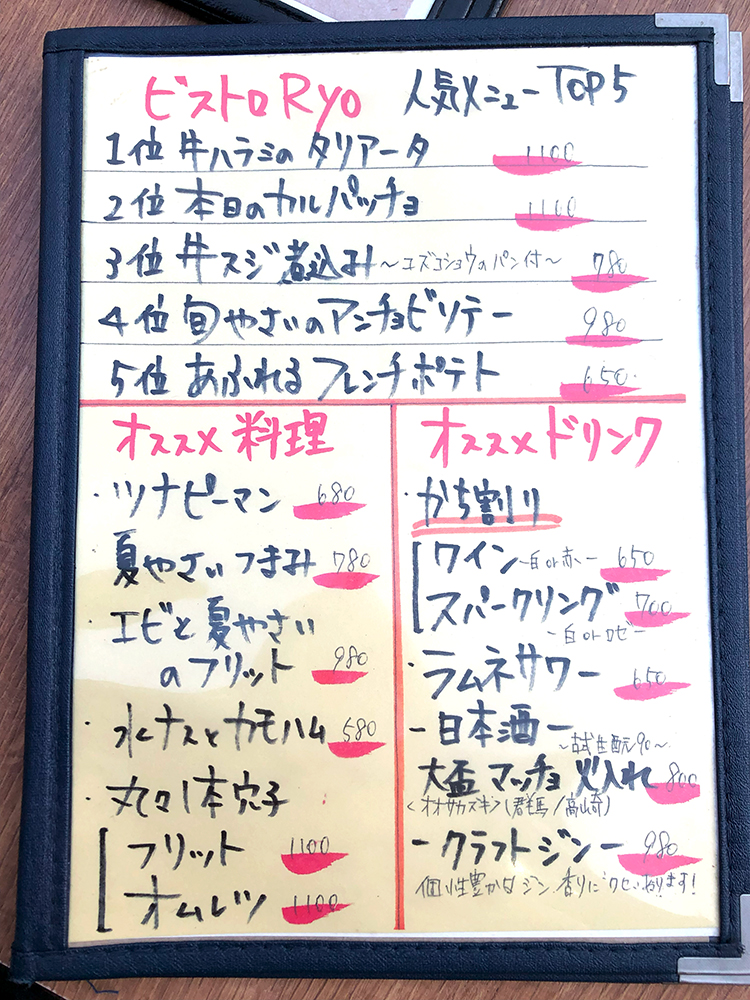 ビストロRyo 人気メニューTOP5
1位 牛ハラミのタリアータ 1100
2位 本日のカルパッチョ 1100
3位 牛スジ煮込み〜ユズコショウのパン付〜 780
4位 旬やさいのアンチョビソテー 980
5位 あふれるフレンチポテト 650
オススメ料理
・ツナピーマン 680
夏やさいつまみ 780
・エビと夏やさい
のフリット 980
・水ナスとカモハム 580
・丸々1本穴子
フリット 1100
オムレツ 1100
オススメドリンク
・かち割り
ワイン〜白or赤〜 650
スパークリング 700
〜白orロゼ〜
・ラムネサワー 650
ー日本酒ー
大盃 マッチョ 火入れ 800
<オオサカズキ>(群馬/高崎)
ークラフトジンー 980
個性豊かなジン.香りにクセ